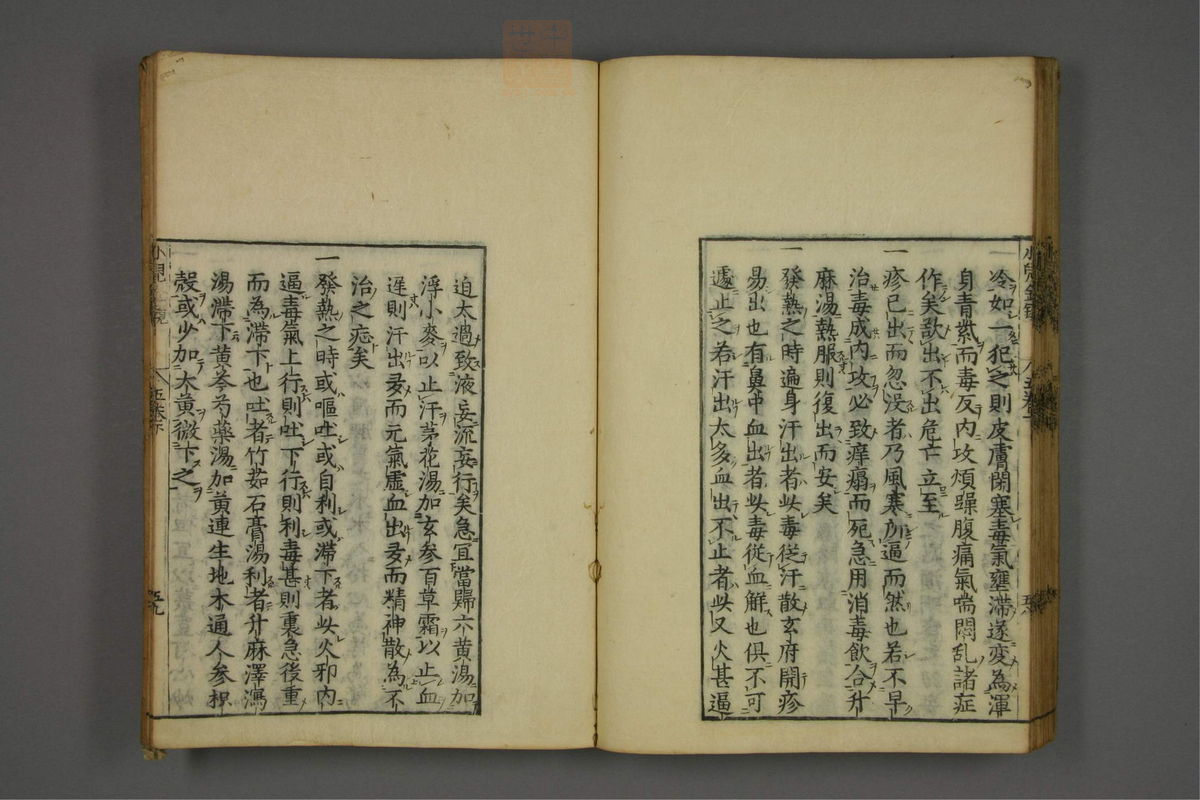 冷如一犯之則皮膚閉塞毒氣壅滯遂變為渾
身青紫而毒反内攻煩躁腹痛氣喘悶乱諸症
作矣欲出不出危亡立至
一疹已出而忽没者乃風寒所逼而然也若不早
治毒成内攻必致痒瘍而死急用消毒飲合升
麻湯熱服則復出而安矣
一發熱之時遍身汗出者此毒從汗散玄府開疹
易出也有鼻中血出者此毒從血解也俱不可
遽止之若汗出太多血出不止者此又火甚逼
迫太過致液妄流妄行矣急宜當歸六黄湯加
浮小麥以止汗茅花湯加玄参百草霜以止血
遲則汗出多而元氣虚血出多而精神散為不
治之症矣
一發熱之時或嘔吐或自利或滯下者此火邪内
逼毒氣上行則吐下行則利毒甚則裏急後重
而為滯下也吐者竹茹石膏湯利者升麻澤瀉
湯滯下黄芩芍藥湯加黄連生地木通人参枳
殻或少加大黄微下之
五卷下
五九